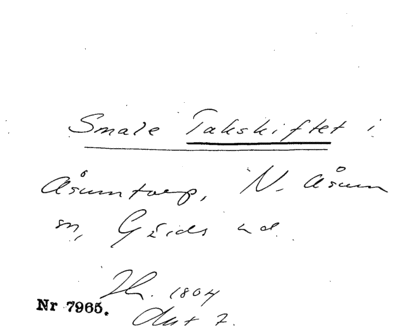 Smale Takskiftet i
Åsumtorp, N. Åsum
sn, Gärds hd.
Th. 1804
Akt 7.
Nr 7965.